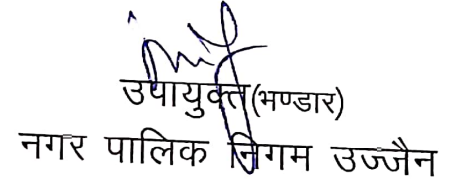 उपायुक्त(भण्डार)
नगर पालिक निगम उज्जैन